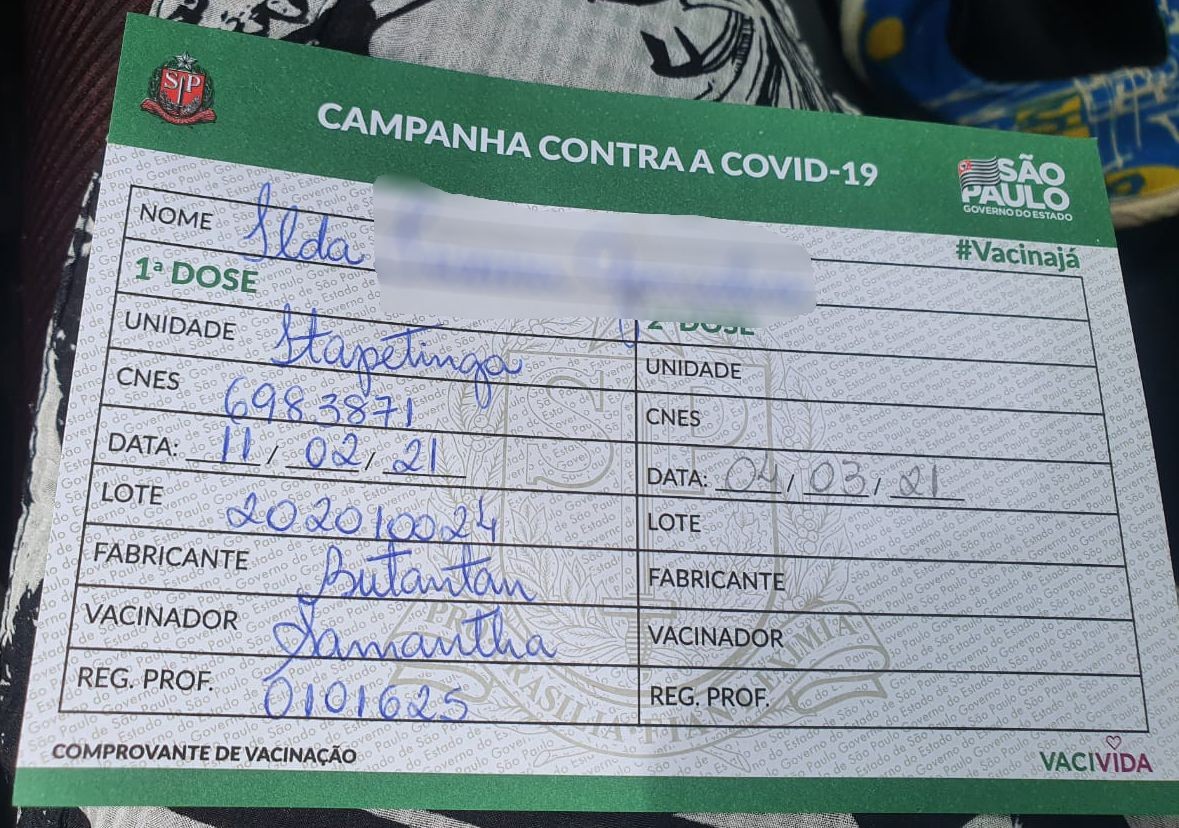 SP
CAMPANHA CONTRA A COVID-19
SÃO
PAULO
GOVERNO DO ESTADO
#Vacinajá
NOME Ilda
1ª DOSE
2ª DOSE
UNIDADE Itapetinga
UNIDADE
CNES 6983871
CNES
DATA: 11 / 02 / 21
DATA: 04 / 03 / 21
LOTE 202010024
LOTE
FABRICANTE Butantan
FABRICANTE
VACINADOR Samantha
VACINADOR
REG. PROF. 0101625
REG. PROF.
COMPROVANTE DE VACINAÇÃO
VACIVIDA